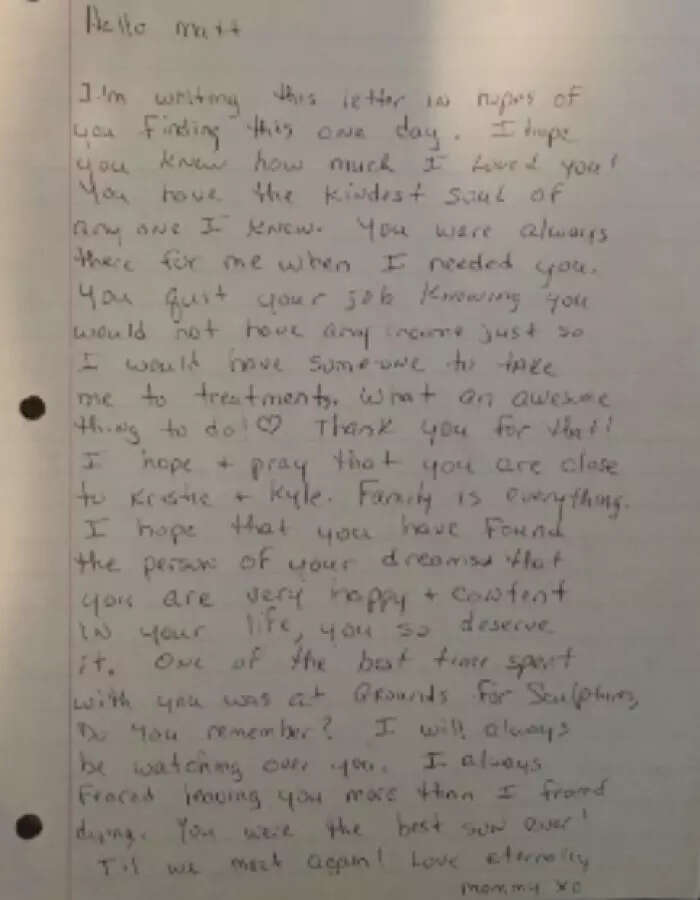 Hello Matt
I'm writing this letter in hopes of
you finding this one day. I hope
you knew how much I loved you!
You have the kindest soul of
anyone I knew. You were always
there for me when I needed you.
You quit your job knowing you
would not have any income just so
I would have someone to take
me to treatments. What an awesome
thing to do! ♡ Thank you for that!
I hope + pray that you are close
to Kristie + Kyle. Family is everything.
I hope that you have found
the person of your dreams + that
you are very happy + content
in your life, you so deserve
it. One of the best time spent
with you was at Grounds for Sculptures,
Do you remember? I will always
be watching over you. I always
feared leaving you more than I feared
dying. You were the best son ever!
Til we meet again! Love eternally
mommy xo